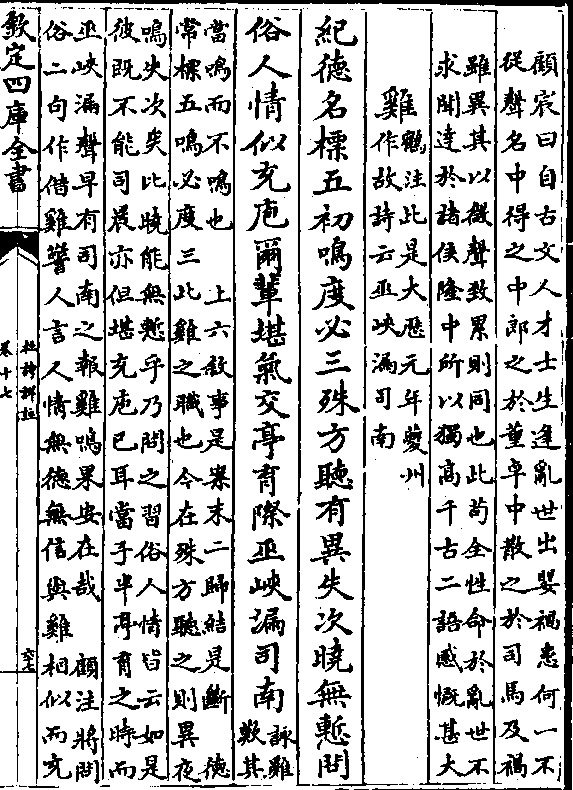 顧宸曰自古文人才士生逢亂世出嬰禍患何一不
從聲名中得之中郎之於董卓中散之於司馬及禍
雖異其以微聲致累則同也此茍全性命於亂世不
求聞達於諸侯隆中所以獨高千古二語感慨甚大
雞
鶴注此是大歴元年夔州
作故詩云巫峽漏司南
紀德名標五初鳴度必三殊方聽有異失次曉無慙問
俗人情似充庖爾輩堪氣交亭育際巫峽漏司南
詠雞
歎其
當鳴而不鳴也 上六叙事是案末二歸結是斷 德
常標五鳴必度三此雞之職也今在殊方聽之則異夜
鳴失次矣比曉能無慙乎乃問之習俗人情皆云如是
彼既不能司晨亦但堪充庖已耳當子半亭育之時而
巫峽漏聲早有司南之報雞鳴果安在哉 顧注將問
俗二句作借雞警人言人情無德無信與雞相似而充
欽定四庫全書
杜詩詳註
卷十七
六十